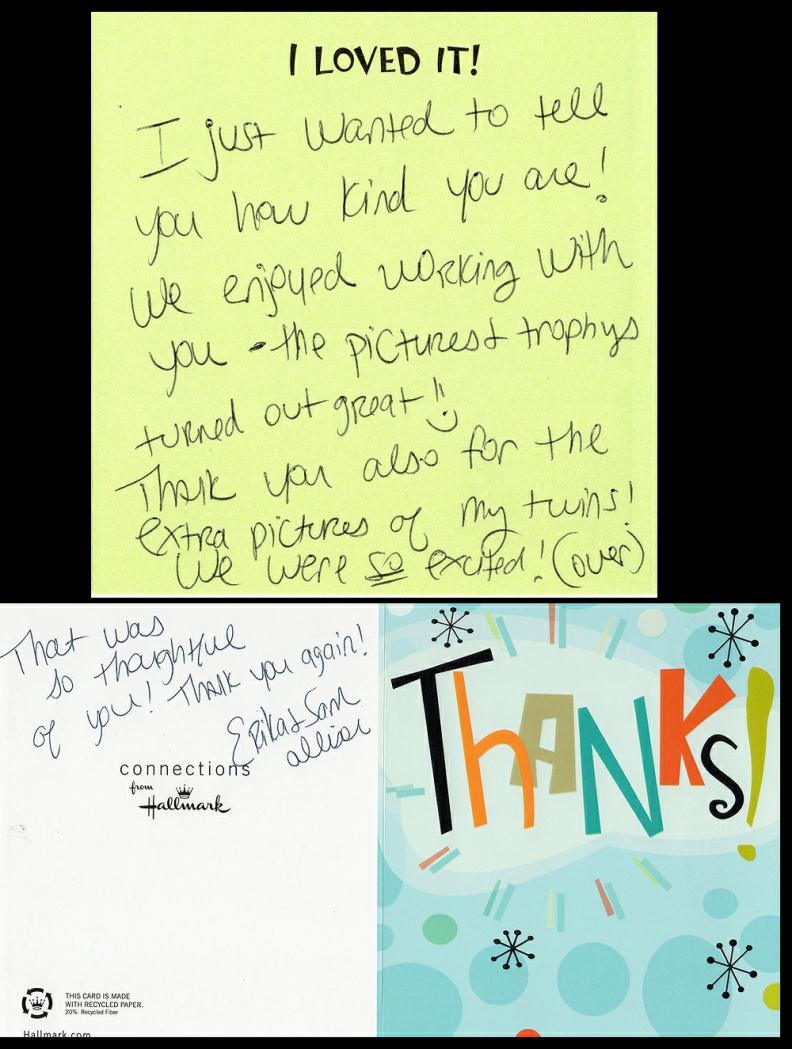 I LOVED IT!
I just wanted to tell
you how kind you are!
We enjoyed working with
you - the pictures & trophys
turned out great!!
Thank you also for the
extra pictures of my twins!
We were so excited! (over)
That was
so thoughtful
of you! Thank you again!
Erika & Sam
allison
connections
from
Hallmark
THIS CARD IS MADE
WITH RECYCLED PAPER.
20% Recycled Fiber
Hallmark.com
THANKS!